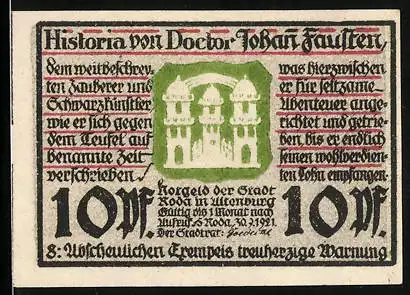 Historia von Doctor Johañ Fausten,
dem weitbeschrey-
ten Zauberer und
Schwarzkünstler
wie er sich gegen
dem Teufel auf
benannte Zeit
verschrieben /
was hierzwischen
er für seltzame
Abenteuer ange-
richtet und getrie-
ben bis er endlich
seinen wohlverdien-
ten Lohn empfangen.
10 Pf.
Notgeld der Stadt
Roda in Altenburg
Gültig bis 1 Monat nach
Aufruf. Roda, 30.7.1921.
Der Stadtrat:
10 Pf.
8: Abscheulichen Exempels treuherzige Warnung